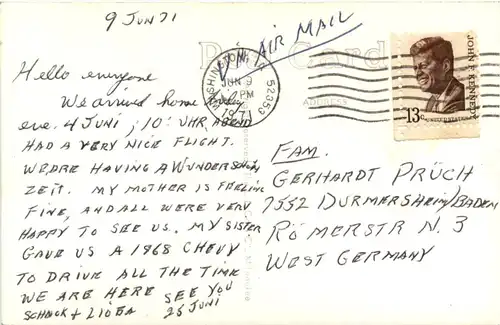 9 JUN 71
AIR MAIL
Post Card
Hello everyone
We arrived home
eve. 4 JUNI; 10: UHR, AND
HAD A VERY NICE FLIGHT.
WE ARE HAVING A WUNDERSCHÖN
ZEIT. MY MOTHER IS FEELING
FINE, AND ALL WERE VERY
HAPPY TO SEE US. MY SISTER
GAVE US A 1968 CHEVY
TO DRIVE ALL THE TIME
WE ARE HERE SEE YOU
25 JUNI
SCHNUCK + LIOBA
WASHINGTON, IA
JUN 9
PM
1971
52353
ADDRESS
JOHN F. KENNEDY
13c UNITED STATES
FAM.
GERHARDT PRÜCH
7552 DURMERSHEIM/BADEN
RÖMERSTR N. 3
WEST GERMANY